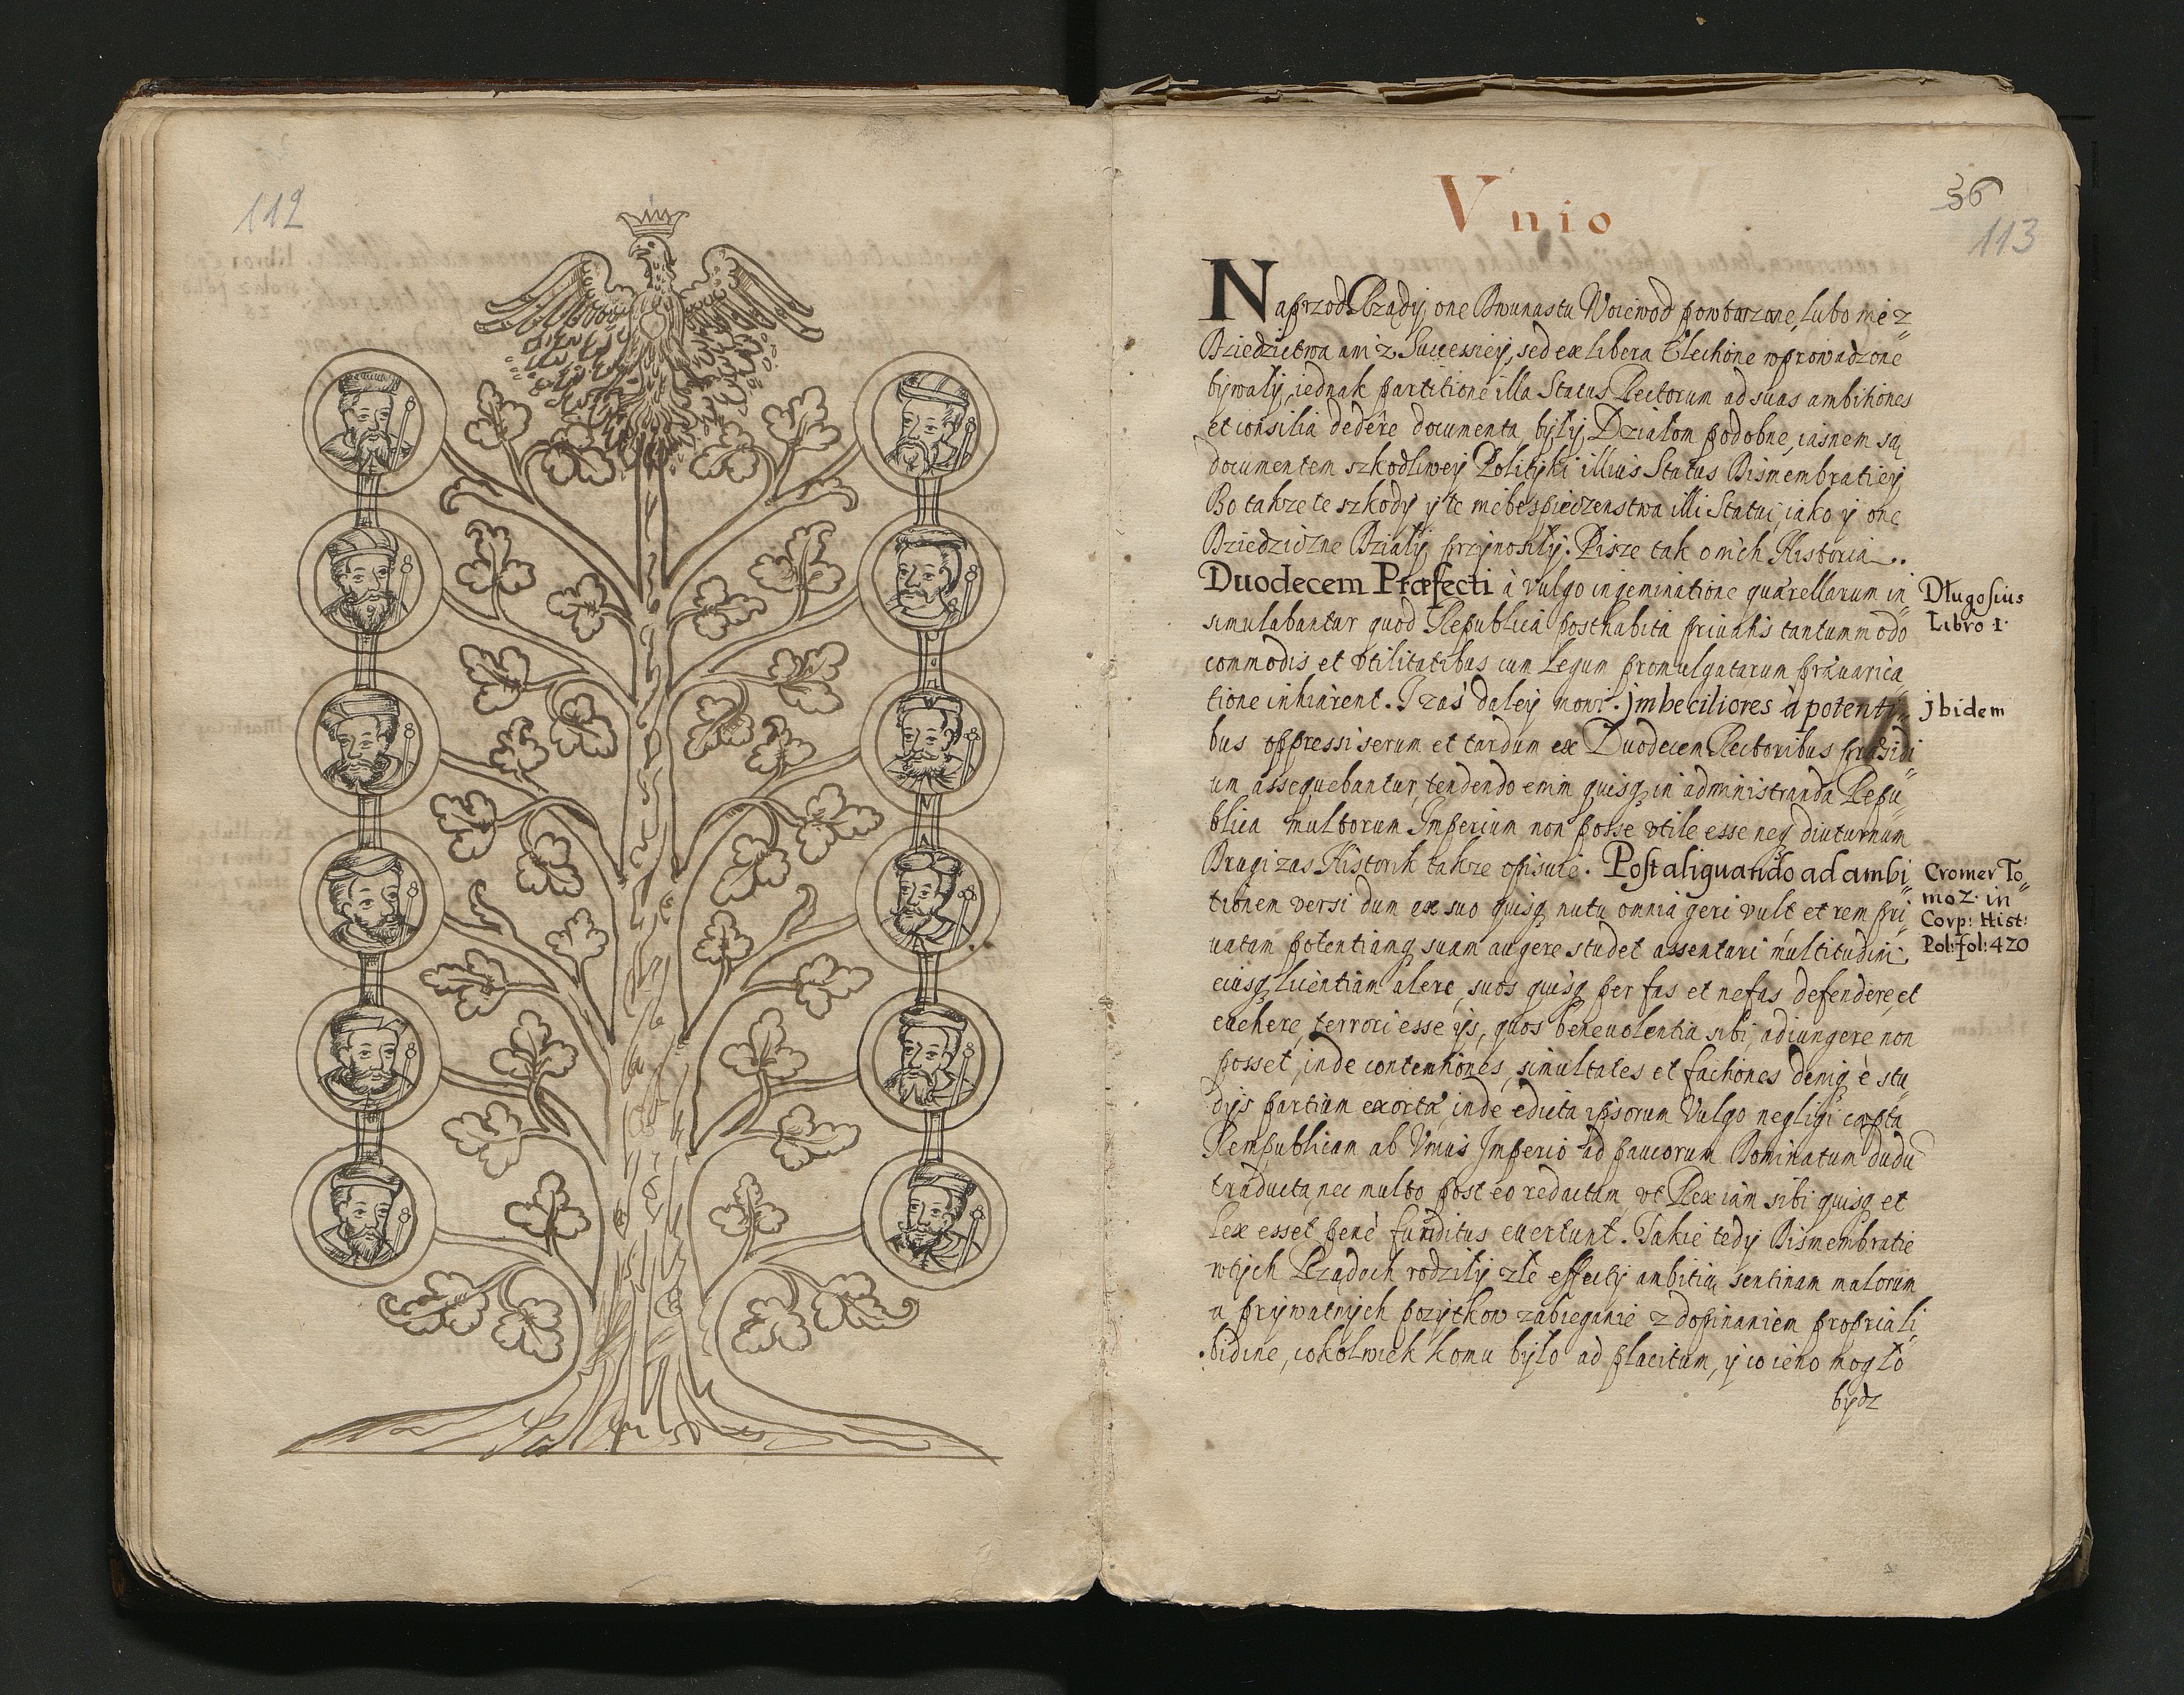 112
36
113
Vnio
Naprzod Rządy one Dwunastu Woiewod powtarzone, lubo nie z
Dziedzictwa ani z Successiey, sed ex libera Electione wprowadzone
bywały, iednak partitione illa Status Rectorum ad suas ambitiones
et consilia dedêre documenta, były Działom podobne, iasnem są
documentem szkodliwey Polityki illius Status Dismembratiey
Bo takze te szkody y te niebespieczenstwa illi Statui, iako y one
Dziedziczne Działy przynosiły. Pisze tak o nich Historia.
Duodecem Præfecti à vulgo ingeminatione quærellarum in
simulabantur quod Republica posthabita priuatis tantummodo
commodis et vtilitatibus cum Legum promulgatarum præuarica
tione inhiarent. I zas daley mowi. jmbeciliores à potenti
bus oppressi serum et tardum ex Duodecem Rectoribus præsidi
um assequebantur, tendendo enim quisq in administranda Repu
blica multorum Imperium non posse vtile esse neq diuturnum
Drugi zas Historik takze opisuie. Post aliquando ad ambi
tionem versi dum ex suo quisq nutu omnia geri vult et rem pri
uatam potentiamq suam augere studet assentari multitudini
eiusq licentiam alere, suos quisq per fas et nefas defendere, et
euehere, terrori esse ijs, quos beneuolentia sibi adiungere non
posset, inde contentiones, simultates et factiones deniq è stu
dijs partium exorta, inde edicta ipsorum Vulgo negligi cæpta
Rempublicam ab Vnius Imperio ad paucorum Dominatum dudũ
traducta, nec multo post eo redactam, vt Rex iam sibi quisq et
lex esset penè funditus euertunt. Takie tedy Dismembratie
w tych Rządach rodziły złe effecty ambitią sentinam malorum
a prywatnych pozytkow zabieganie z dopinaniem propria li
bidine, cokolwiek komu było ad placitum, y co ieno mogło
bydz
Długosius
Libro I.
jbidem
Cromer To
mo 2. in
Corp: Hist:
Pol: fol: 420